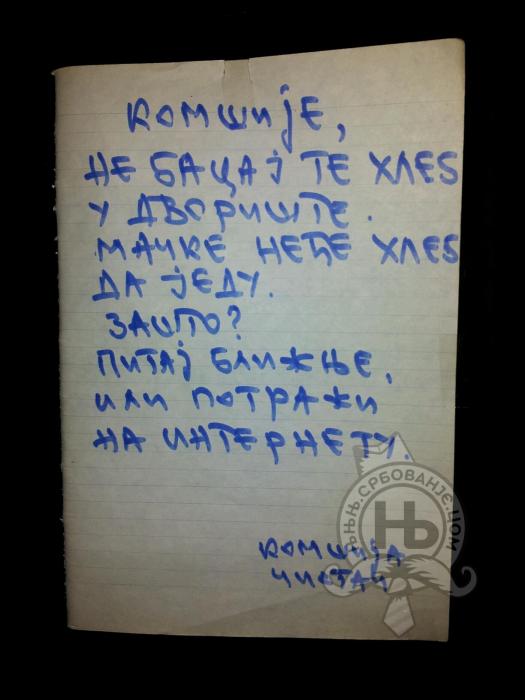 КОМШИЈЕ,
НЕ БАЦАЈ ТЕ ХЛЕБ
У ДВОРИШТЕ.
МАЧКЕ НЕЂЕ ХЛЕБ
ДА ЈЕДУ.
ЗАШТО?
ПИТАЈ БЛИЖЊЕ,
ИЛИ ПОТРАЖИ
НА ИНТЕРНЕТУ.
КОМШИЈА
ЧИСТАЧ
ЊЊЊ.СРБОВАЊЕ.ЦОМ
Њ